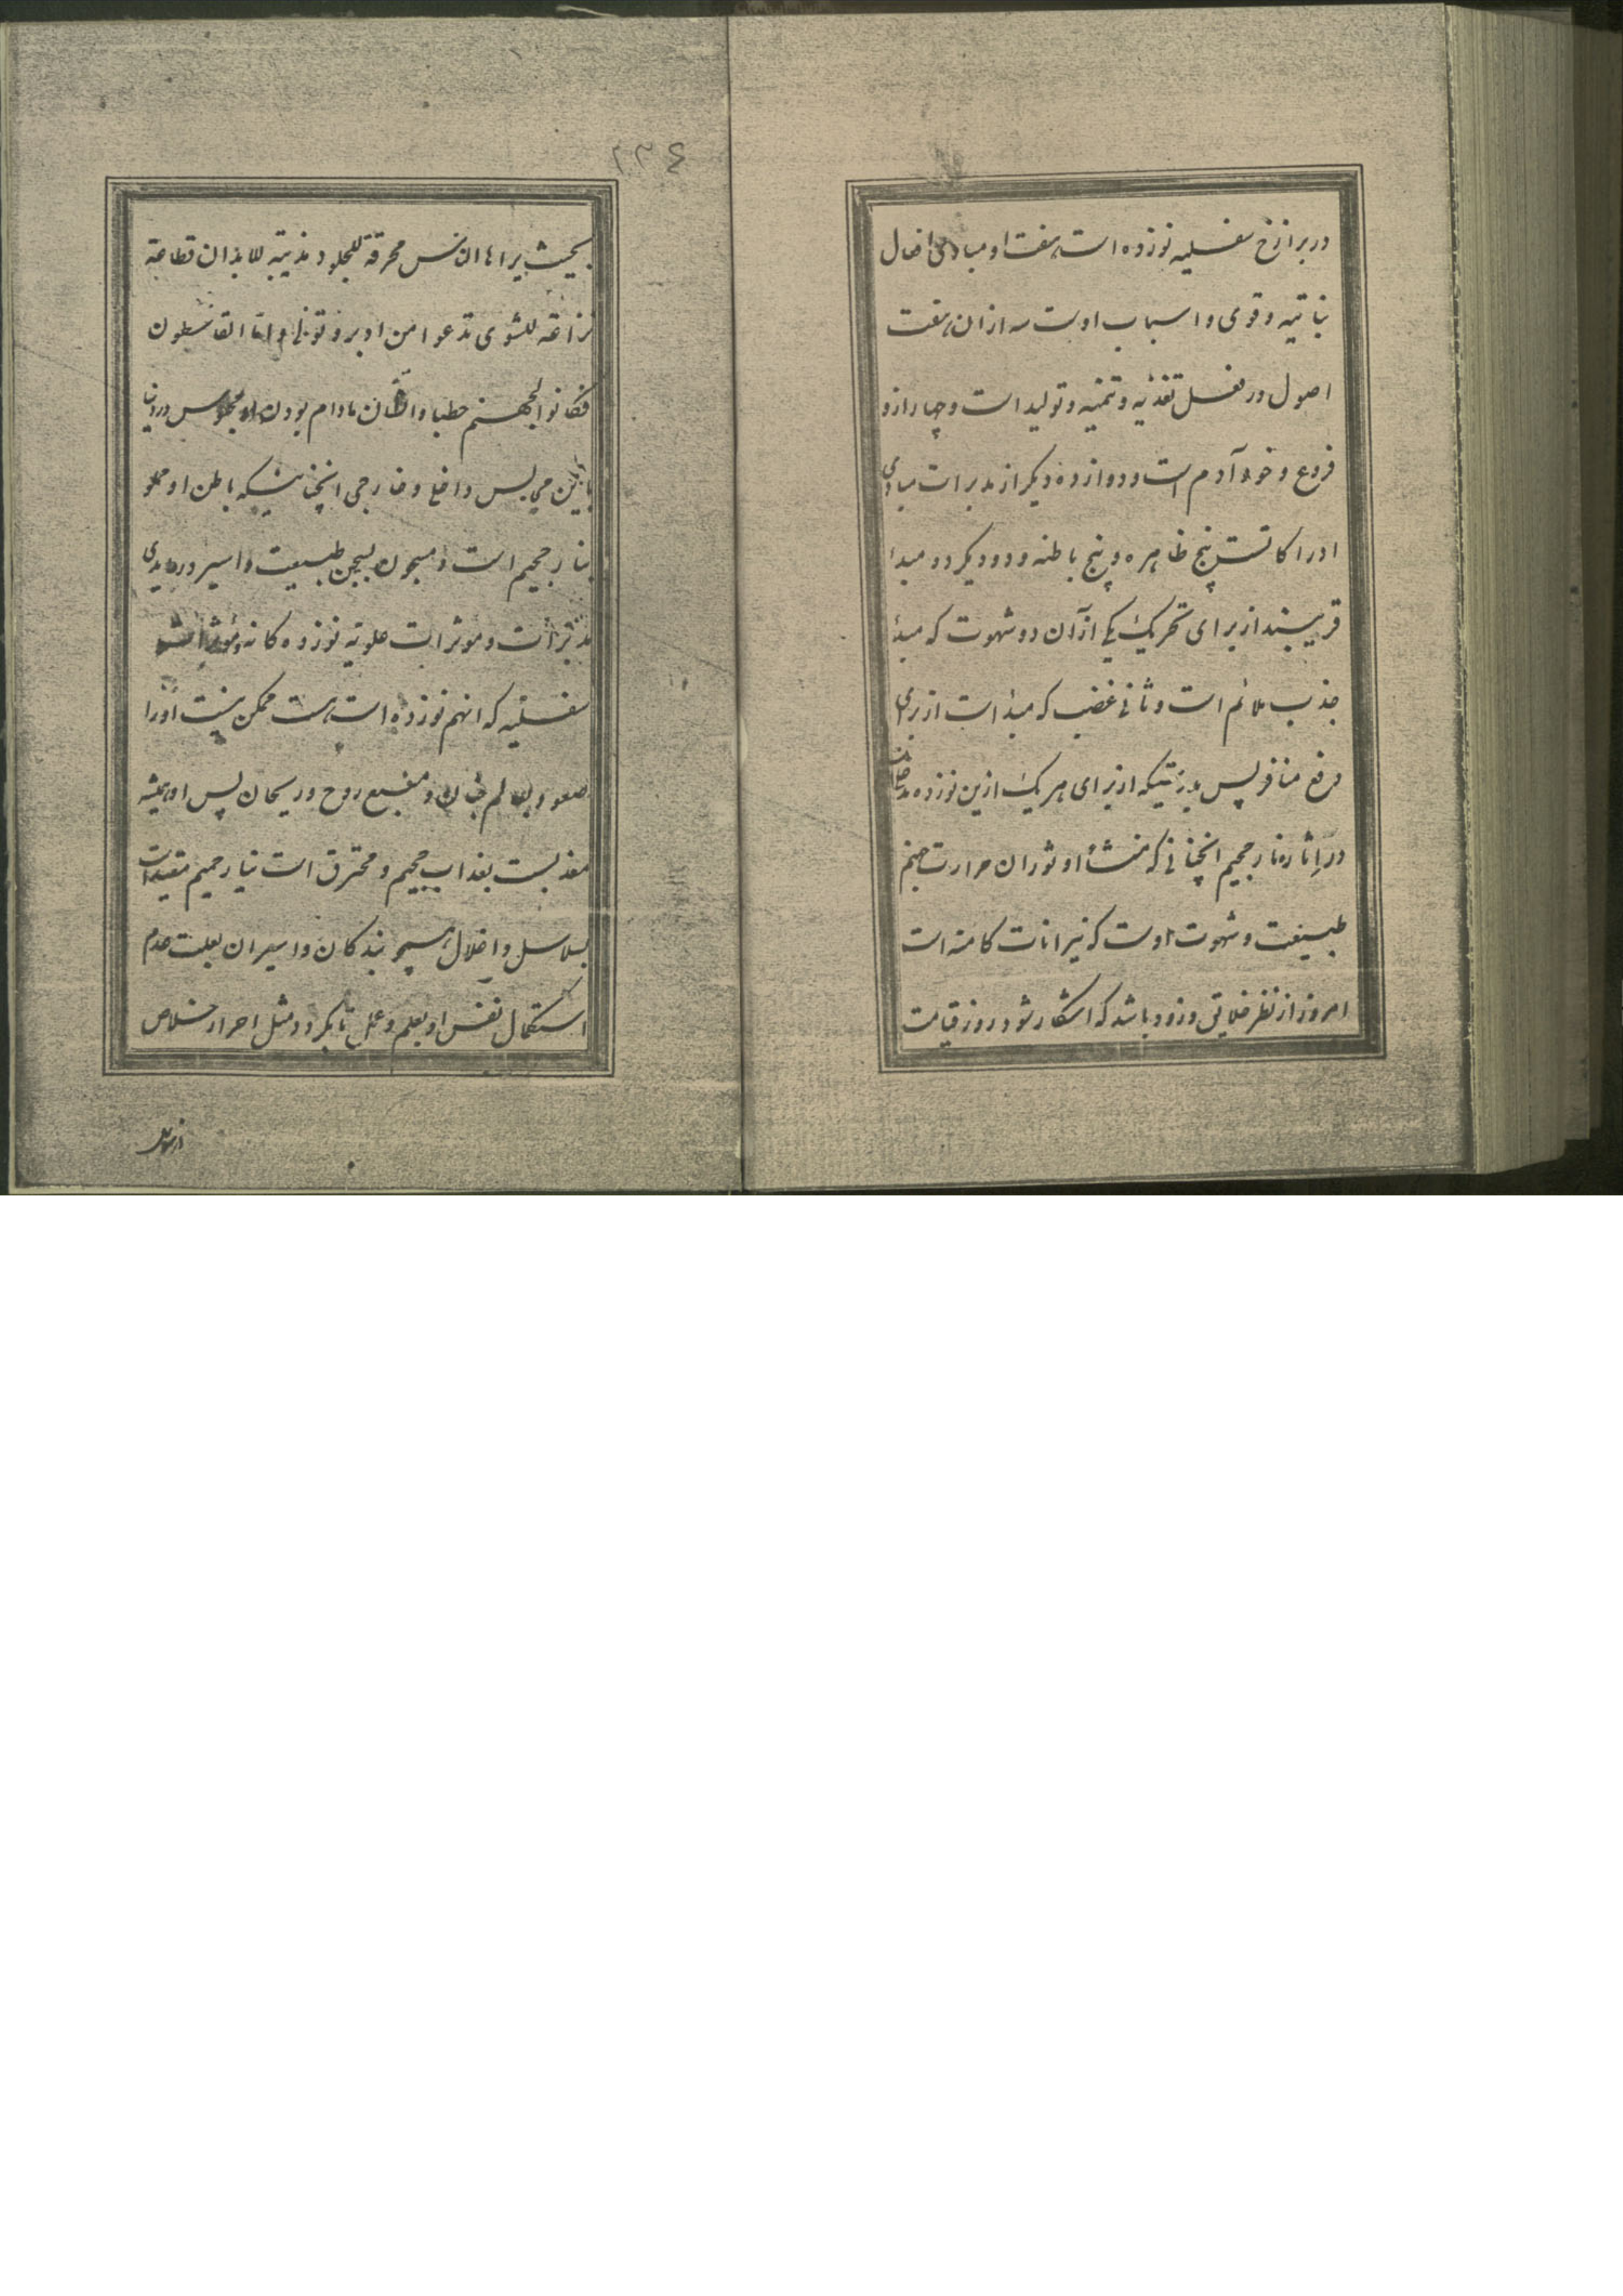 در برازخ سفلیه نوزده است هفت او مبادی افعال
نباتیه و قوی و اسباب اوست سه از ان هفت
اصول در فعل تغذیه و تنمیه و تولید است و چهار ازو
فروع و خوادم است و دوازده دیگر از مدبرات مبادی
ادراکاتست پنج ظاهره و پنج باطنه و دو دیگر دو مبدا
قریبند از برای تحریک یکی از آن دو شهوت که مبدٔ
جذب ملائم است و ثانی غضب که مبدٔ است از برای
دفع منافر پس بدرستیکه از برای هر یک ازین نوزده مدخلیت
در اثاره نار جحیم انچنانی که منشأ او ثوران حرارت جهنم
طبیعت و شهوت اوست که نیرانات کامنه است
امروز از نظر خلایق و زود باشد که اشکار شود روز قیامت
٢٣٤
بحیث یراها الناس محرقة للجلود مذیبة للابدان قطاعة
نزاعة للشوی تدعوا من ادبر و تولی و اما القاسطون
فکانوا لجهنم حطبا و انسان مادام بودن او محبوس در دنیا
باین محابس داخلی و خارجی انچنانیکه باطن او مملو
بنار جحیم است و مسجون بسجن طبیعت و اسیر در ایدی
مدبرات و موثرات علویه نوزده کانه و موثرات
سفلیه که انهم نوزده است هست ممکن نیست اورا
صعود بعالم جنان و منبع روح و ریحان پس او همیشه
معذبست بعذاب جحیم و محترق است بنار حمیم مقید است
بسلاسل و اغلال همچو بندکان و اسیران بعلت عدم
استکمال نفس او بعلم و عمل تا بکردد مثل احرار خلاص